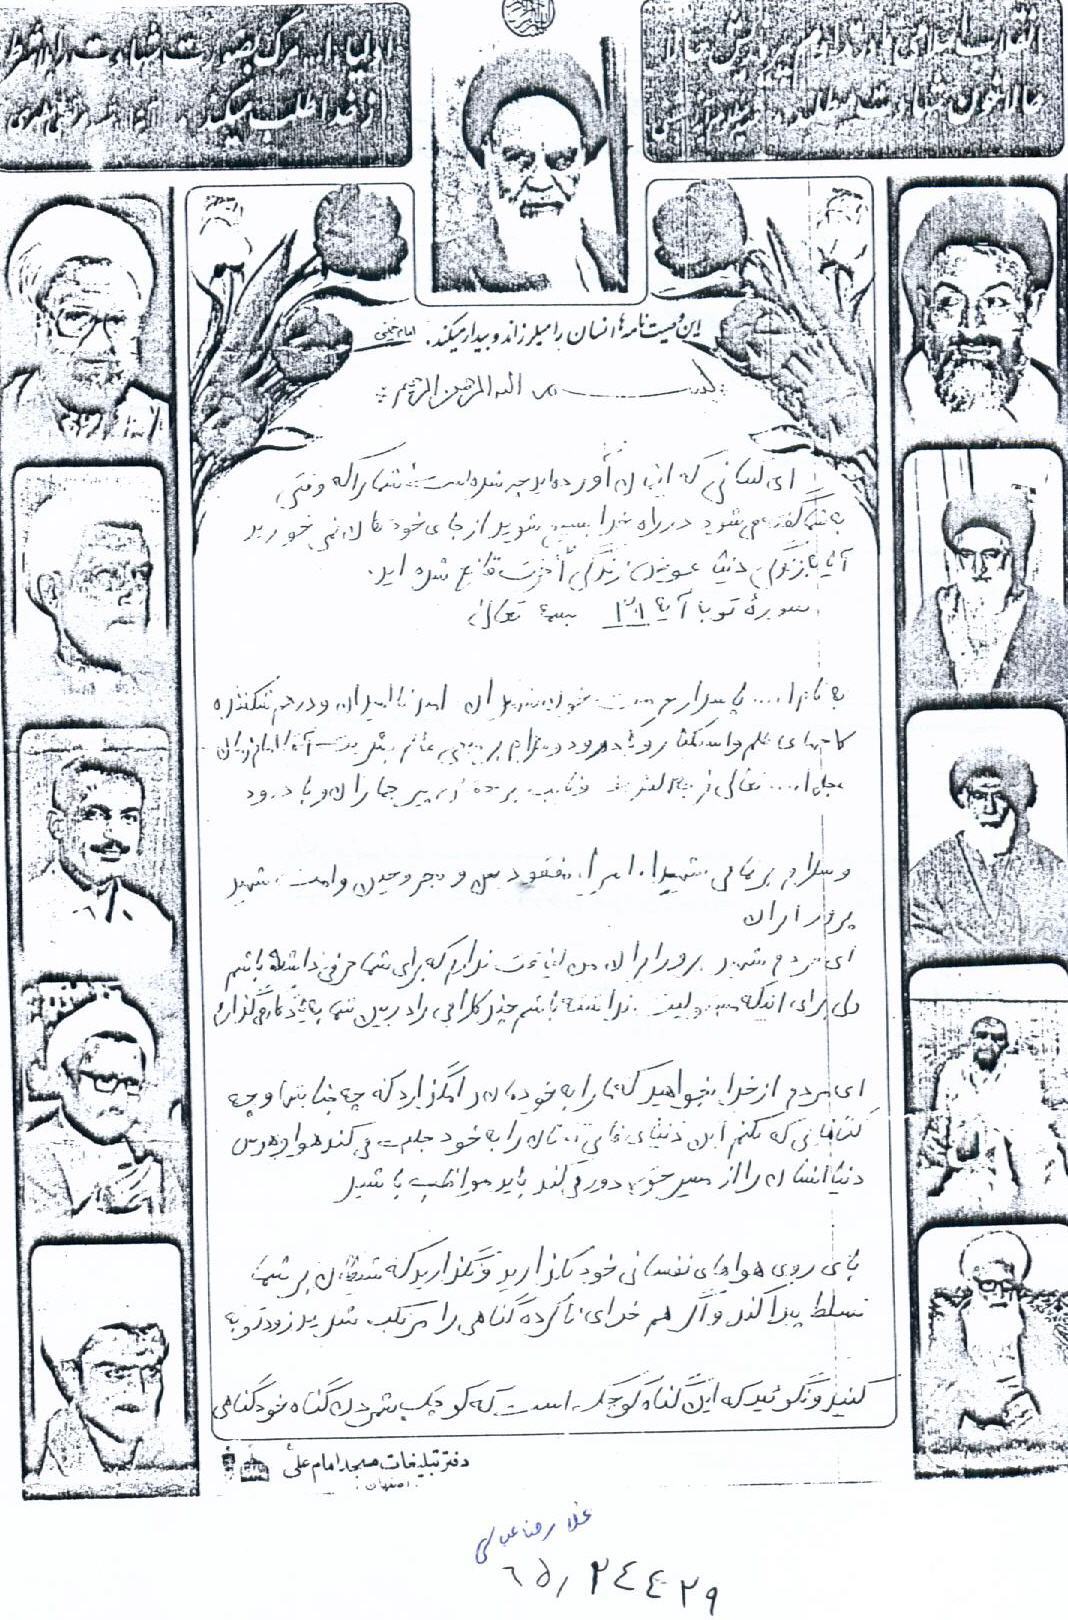 انقلاب اسلامی ما در تداوم پیروزیش حالا
حالاها خون و شهادت می‌طلبد.
اولیاء ا... مرگ بصورت شهادت را
از خدا طلب میکنند.
این وصیت‌نامه‌ها انسان را میلرزاند و بیدار میکند. امام خمینی
بسم الله الرحمن الرحیم
ای کسانی که ایمان آورده‌اید چه شده است شما را که وقتی
به شما گفته می‌شود در راه خدا بسیج شوید از جای خود تکان نمی خورید
آیا بازندگی دنیا عوض زندگی آخرت قانع شده اید.
سورهٔ توبا آیهٔ ۳۸ بسمه تعالی
به نام ا... پاسدار حرمت خون شهیدان و درهم شکننده
کاخهای ظلم و استکبار و با درود و سلام بر منجی عالم بشریت آقا امام زمان
عجل ا... تعالی فرجه الشریف و نایب بر حقش پیر جماران و با درود
و سلام بر تمامی شهیدا، اسرا، مفقودین و مجروحین و امت شهید
پرور ایران
ای مردم شهید پرور ایران من لیاقت ندارم که برای شما حرفی داشته باشم
ولی برای اینکه مسولیت نداشته باشم چند کلامی را در بین شما به یادگار می گذارم
ای مردم از خدا بخواهید که ما را به خودمان وامگذارد که چه جنایتها و چه
گناهانی که نکنم این دنیای فانی تان را به خود جلب می کند هوا و هوس
دنیا انسان را از مسیر حق دور می کند باید مواظب باشید
پای روی هواهای نفسانی خود بگذارید و نگذارید که شیطان بر شما
تسلط پیدا کند و اگر هم خدای ناکرده گناهی را مرتکب شدید زود توبه
کنید و نگوئید که این گناه کوچک است که کوچک شمردن گناه خود گناهی
دفتر تبلیغات مسجد امام علی
اصفهان
غلامرضا عباسی
۶۵/۲۴۴۲۹